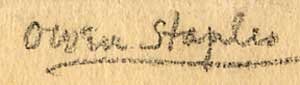 Owen Staples